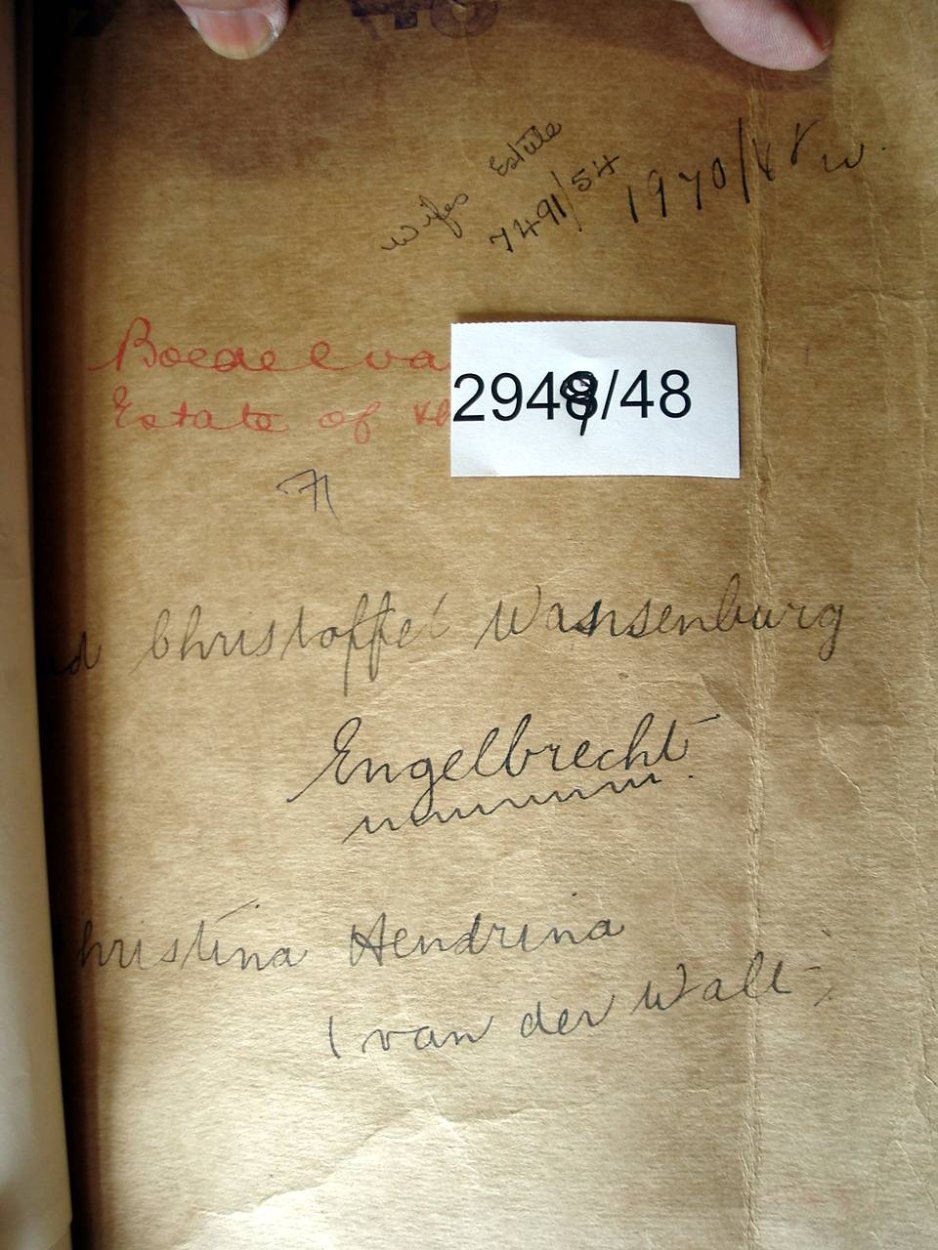 Wifes Estate
7491/54
1970/48 W.
Boedel va
Estate of the
2949/48
Christoffel Wansenburg
Engelbrecht
hristina Hendrina
(van der Walt